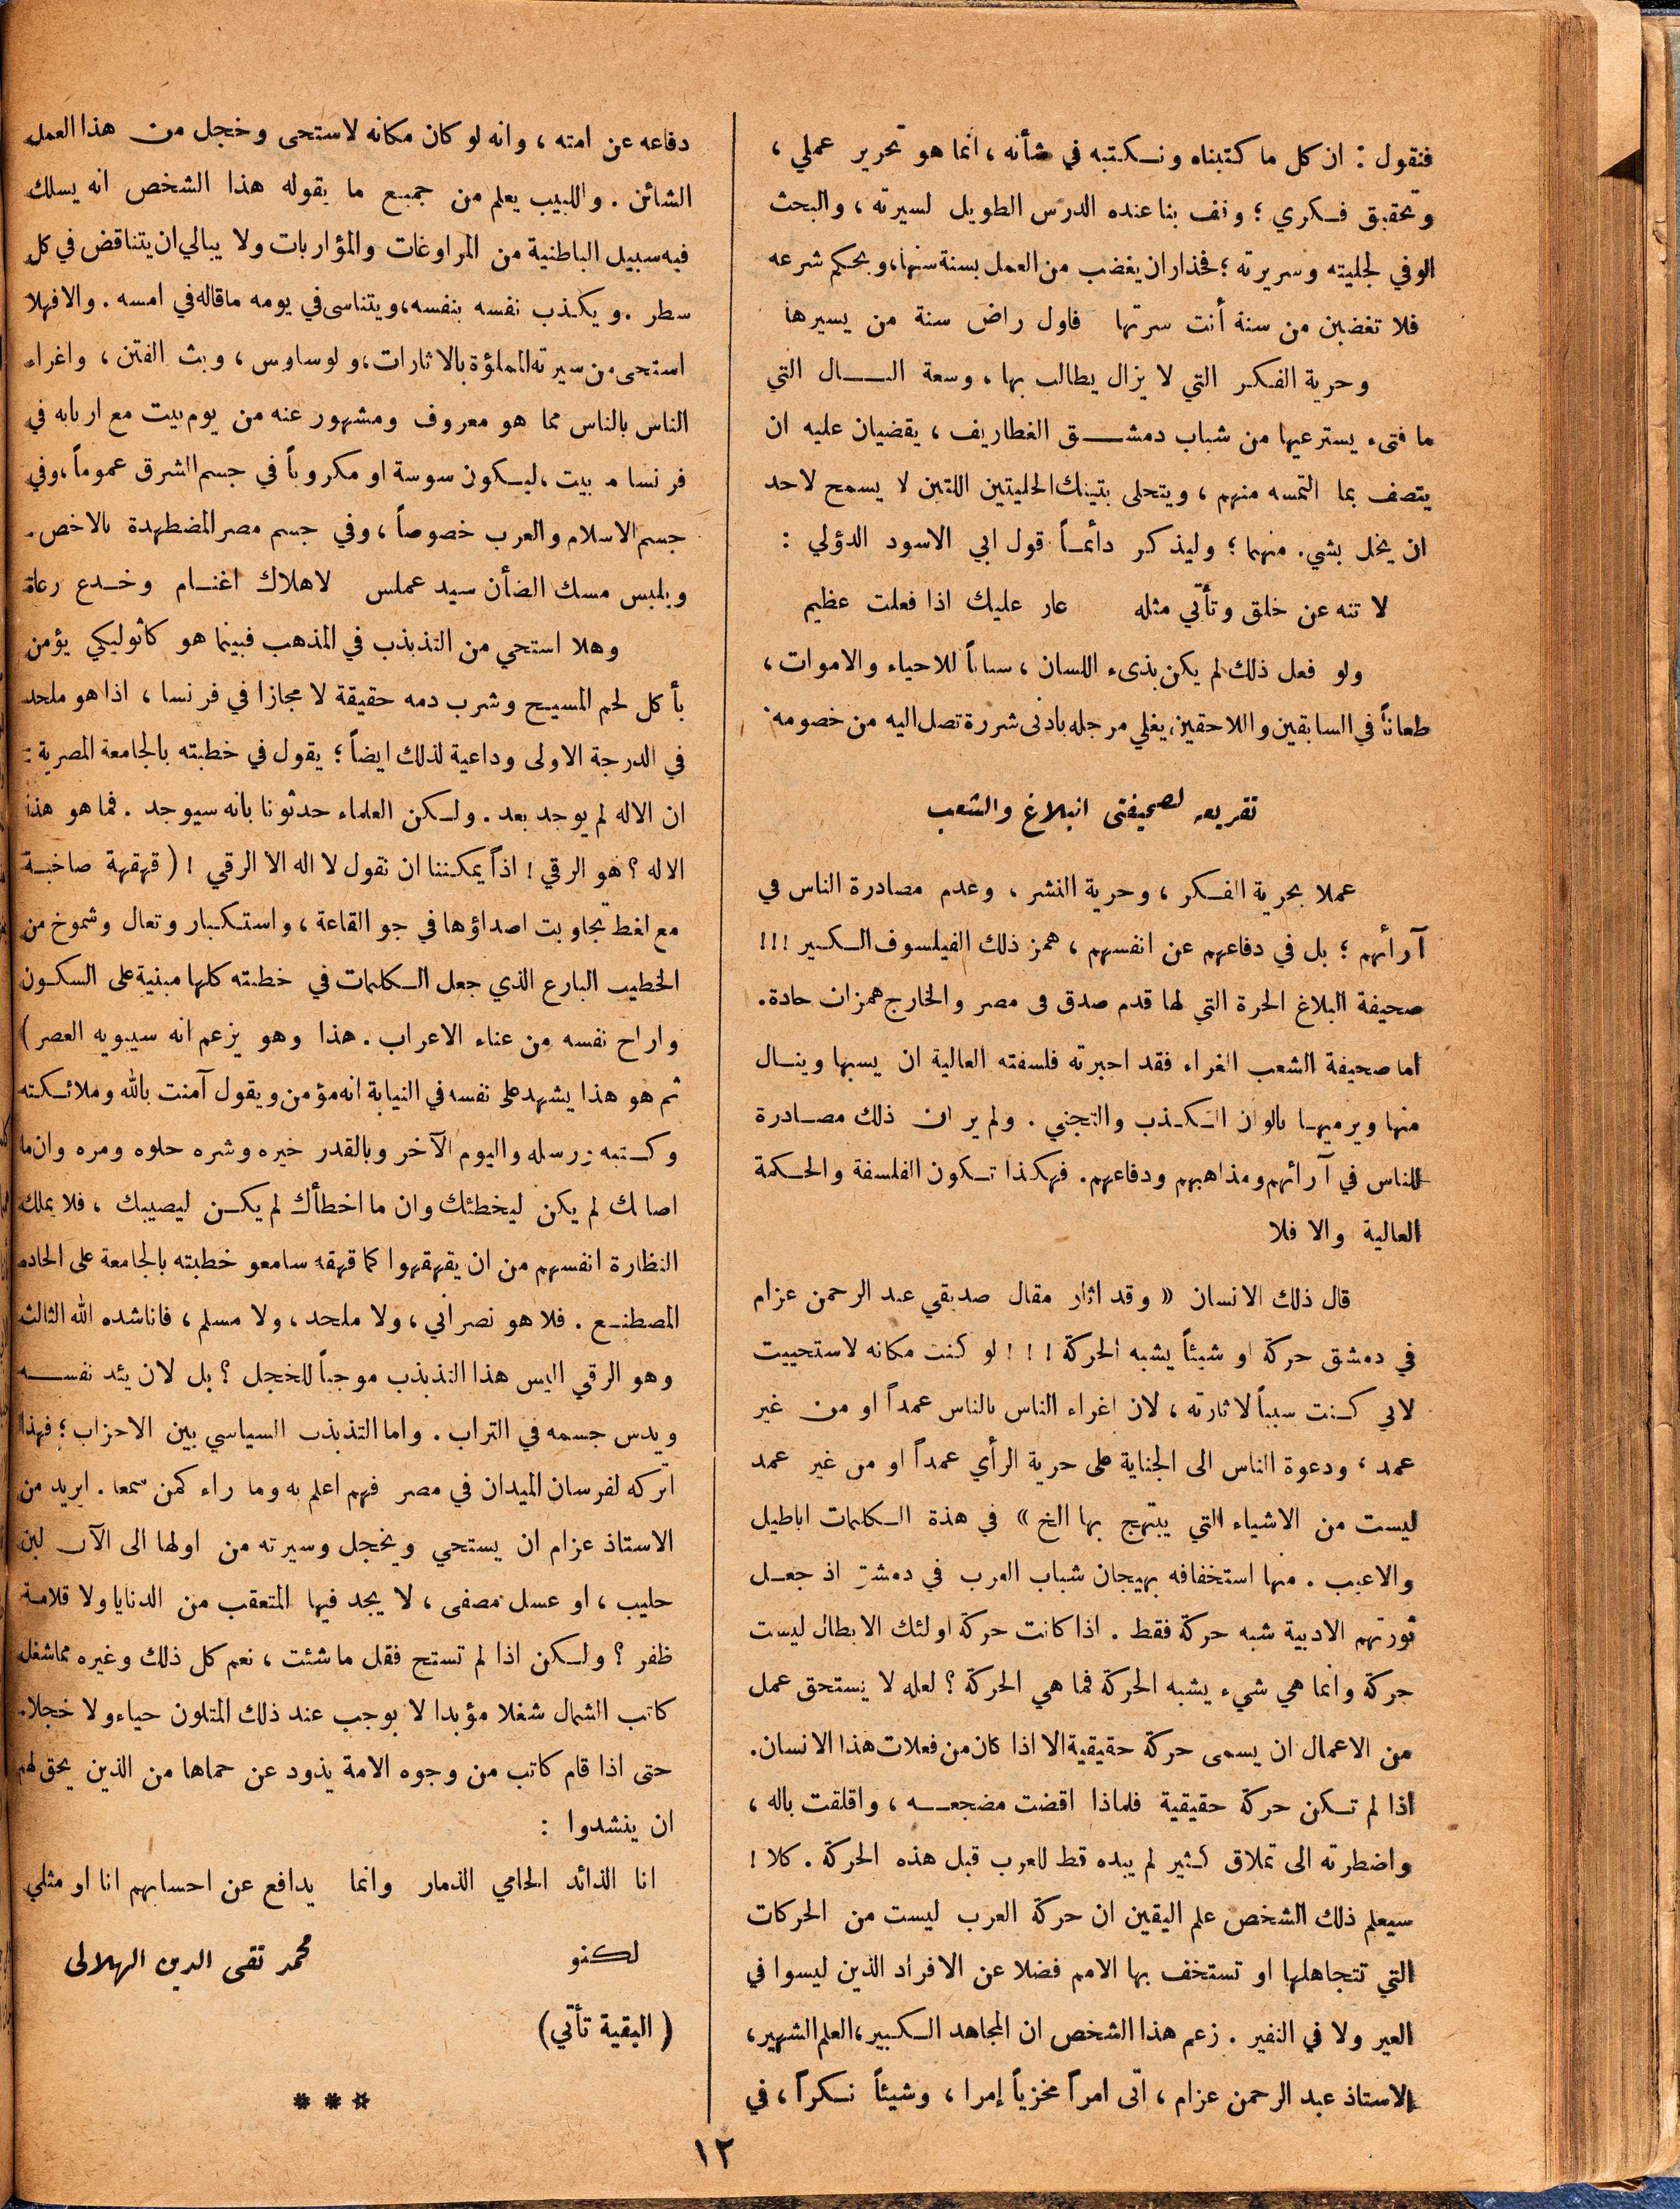 فنقول : ان كل ما كتبناه ونكتبه في شأنه ، انما هو تحرير عملي ،
وتحقيق فكري ؛ وقف بنا عنده الدرس الطويل لسيرته ، والبحث
الوفي لجليته وسريرته ؛ فحذار ان يغضب من العمل بسنة سنها ، وبحكم شرعه
فلا تغضبن من سنة أنت سرتها فاول راض سنة من يسيرها
وحرية الفكر التي لا يزال يطالب بها ، وسعة البال التي
ما فتىء يسترعيها من شباب دمشق الغطاريف ، يقضيان عليه ان
يتصف بما التمسه منهم ، ويتحلى بتينك الحليتين اللتين لا يسمح لاحد
ان يخل بشيء منهما ؛ وليذكر دائماً قول ابي الاسود الدؤلي :
لا تنه عن خلق وتأتي مثله عار عليك اذا فعلت عظيم
ولو فعل ذلك لم يكن بذىء اللسان ، سباباً للاحياء والاموات ،
طعاناً في السابقين واللاحقين ، يغلي مرجله بادنى شررة تصل اليه من خصومه
تقريعه لصحيفتى البلاغ والشعب
عملا بحرية الفكر ، وحرية النشر ، وعدم مصادرة الناس في
آرائهم ؛ بل في دفاعهم عن انفسهم ، همز ذلك الفيلسوف الكبير !!!
صحيفة البلاغ الحرة التي لها قدم صدق في مصر والخارج همزات حادة .
اما صحيفة الشعب الغراء فقد اجبرته فلسفته العالية ان يسبها وينال
منها ويرميها بالوان الكذب والتجني . ولم ير ان ذلك مصادرة
للناس في آرائهم ومذاهبهم ودفاعهم . فهكذا تكون الفلسفة والحكمة
العالية والا فلا
قال ذلك الانسان « وقد اثار مقال صديقي عبد الرحمن عزام
في دمشق حركة او شيئاً يشبه الحركة ! ! ! لو كنت مكانه لاستحييت
لاني كنت سبباً لاثارته ، لان اغراء الناس بالناس عمداً او من غير
عمد ، ودعوة الناس الى الجناية على حرية الرأي عمداً او من غير عمد
ليست من الاشياء التي يبتهج بها الخ » في هذة الكلمات اباطيل
والاعيب . منها استخفافه بهيجان شباب العرب في دمشق اذ جعل
ثورتهم الادبية شبه حركة فقط . اذا كانت حركة اولئك الابطال ليست
حركة وانما هي شيء يشبه الحركة فما هي الحركة ؟ لعله لا يستحق عمل
من الاعمال ان يسمى حركة حقيقية الا اذا كان من فعلات هذا الانسان .
اذا لم تكن حركة حقيقية فلماذا اقضت مضجعه ، واقلقت باله ،
واضطرته الى تملاق كثير لم يبده قط للعرب قبل هذه الحركة . كلا !
سيعلم ذلك الشخص علم اليقين ان حركة العرب ليست من الحركات
التي تتجاهلها او تستخف بها الامم فضلا عن الافراد الذين ليسوا في
العير ولا في النفير . زعم هذا الشخص ان المجاهد الكبير ، العلم الشهير ،
الاستاذ عبد الرحمن عزام ، اتى امراً مخزياً إمرا ، وشيئاً نكراً ، في
دفاعه عن امته ، وانه لو كان مكانه لاستحى وخجل من هذا العمل
الشائن . واللبيب يعلم من جميع ما يقوله هذا الشخص انه يسلك
فيه سبيل الباطنية من المراوغات والمؤاربات ولا يبالي ان يتناقض في كل
سطر . ويكذب نفسه بنفسه ، ويتناسى في يومه ما قاله في امسه . والا فهلا
استحى من سيرته المملؤة بالاثارات ، ولوساوس ، وبث الفتن ، واغراء
الناس بالناس مما هو معروف ومشهور عنه من يوم بيت مع اربابه في
فرنسا ما بيت ، ليكون سوسة او مكروباً في جسم الشرق عموماً ، وفي
جسم الاسلام والعرب خصوصاً ، وفي جسم مصر المضطهدة بالاخص .
ويلبس مسك الضأن سيد عملس لاهلاك اغنام وخدع رعاة
وهلا استحي من التذبذب في المذهب فبينما هو كاثوليكي يؤمن
بأكل لحم المسيح وشرب دمه حقيقة لا مجازا في فرنسا ، اذا هو ملحد
في الدرجة الاولى وداعية لذلك ايضاً ؛ يقول في خطبته بالجامعة المصرية :
ان الاله لم يوجد بعد . ولكن العلماء حدثونا بانه سيوجد . فما هو هذا
الاله ؟ هو الرقي ! اذاً يمكننا ان نقول لا اله الا الرقي ! ( قهقهة صاخبة
مع لغط تجاوبت اصداؤها في جو القاعة ، واستكبار وتعال وشموخ من
الخطيب البارع الذي جعل الكلمات في خطبته كلها مبنية على السكون
واراح نفسه من عناء الاعراب . هذا وهو يزعم انه سيبويه العصر )
ثم هو هذا يشهد على نفسه في النيابة انه مؤمن ويقول آمنت بالله وملائكته
وكتبه ورسله واليوم الآخر وبالقدر خيره وشره حلوه ومره وان ما
اصابك لم يكن ليخطئك وان ما اخطأك لم يكن ليصيبك ، فلا يملك
النظارة انفسهم من ان يقهقهوا كما قهقه سامعو خطبته بالجامعة على الحاده
المصطنع . فلا هو نصراني ، ولا ملحد ، ولا مسلم ، فاناشده الله الثالث
وهو الرقي اليس هذا التذبذب موجباً للخجل ؟ بل لان يئد نفسه
ويدس جسمه في التراب . واما التذبذب السياسي بين الاحزاب ؛ فهذا
اتركه لفرسان الميدان في مصر فهم اعلم به وما راء كمن سمعا . ايريد من
الاستاذ عزام ان يستحي ويخجل وسيرته من اولها الى الآن لبن
حليب ، او عسل مصفى ، لا يجد فيها المتعقب من الدنايا ولا قلامة
ظفر ؟ ولكن اذا لم تستح فقل ما شئت ، نعم كل ذلك وغيره مما شغل
كاتب الشمال شغلا مؤبدا لا يوجب عند ذلك المتلون حياء ولا خجلا .
حتى اذا قام كاتب من وجوه الامة يذود عن حماها من الذين يحق لهم
ان ينشدوا :
انا الذائد الحامي الذمار وانما يدافع عن احسابهم انا او مثلي
لكنو محمد تقى الدين الهلالى
( البقية تأتي )
* * *
١٢